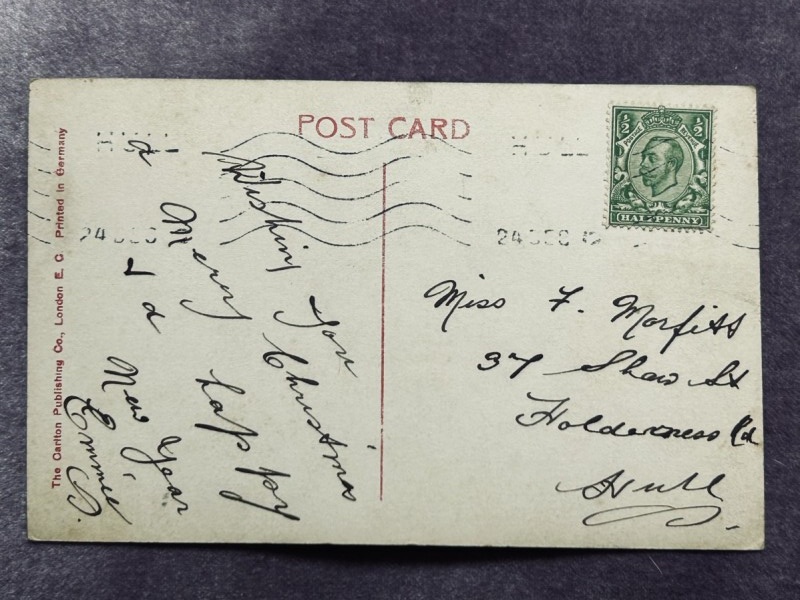 POST CARD
HULL
24 DEC
HULL
24 DEC 12
½ ½
POSTAGE REVENUE
HALFPENNY
The Carlton Publishing Co., London E. C. Printed in Germany
Wishing you
a Merry Christmas
& a happy
New Year
Emmie
Miss F. Morfitt
37 Shaw St
Holderness Rd
Hull